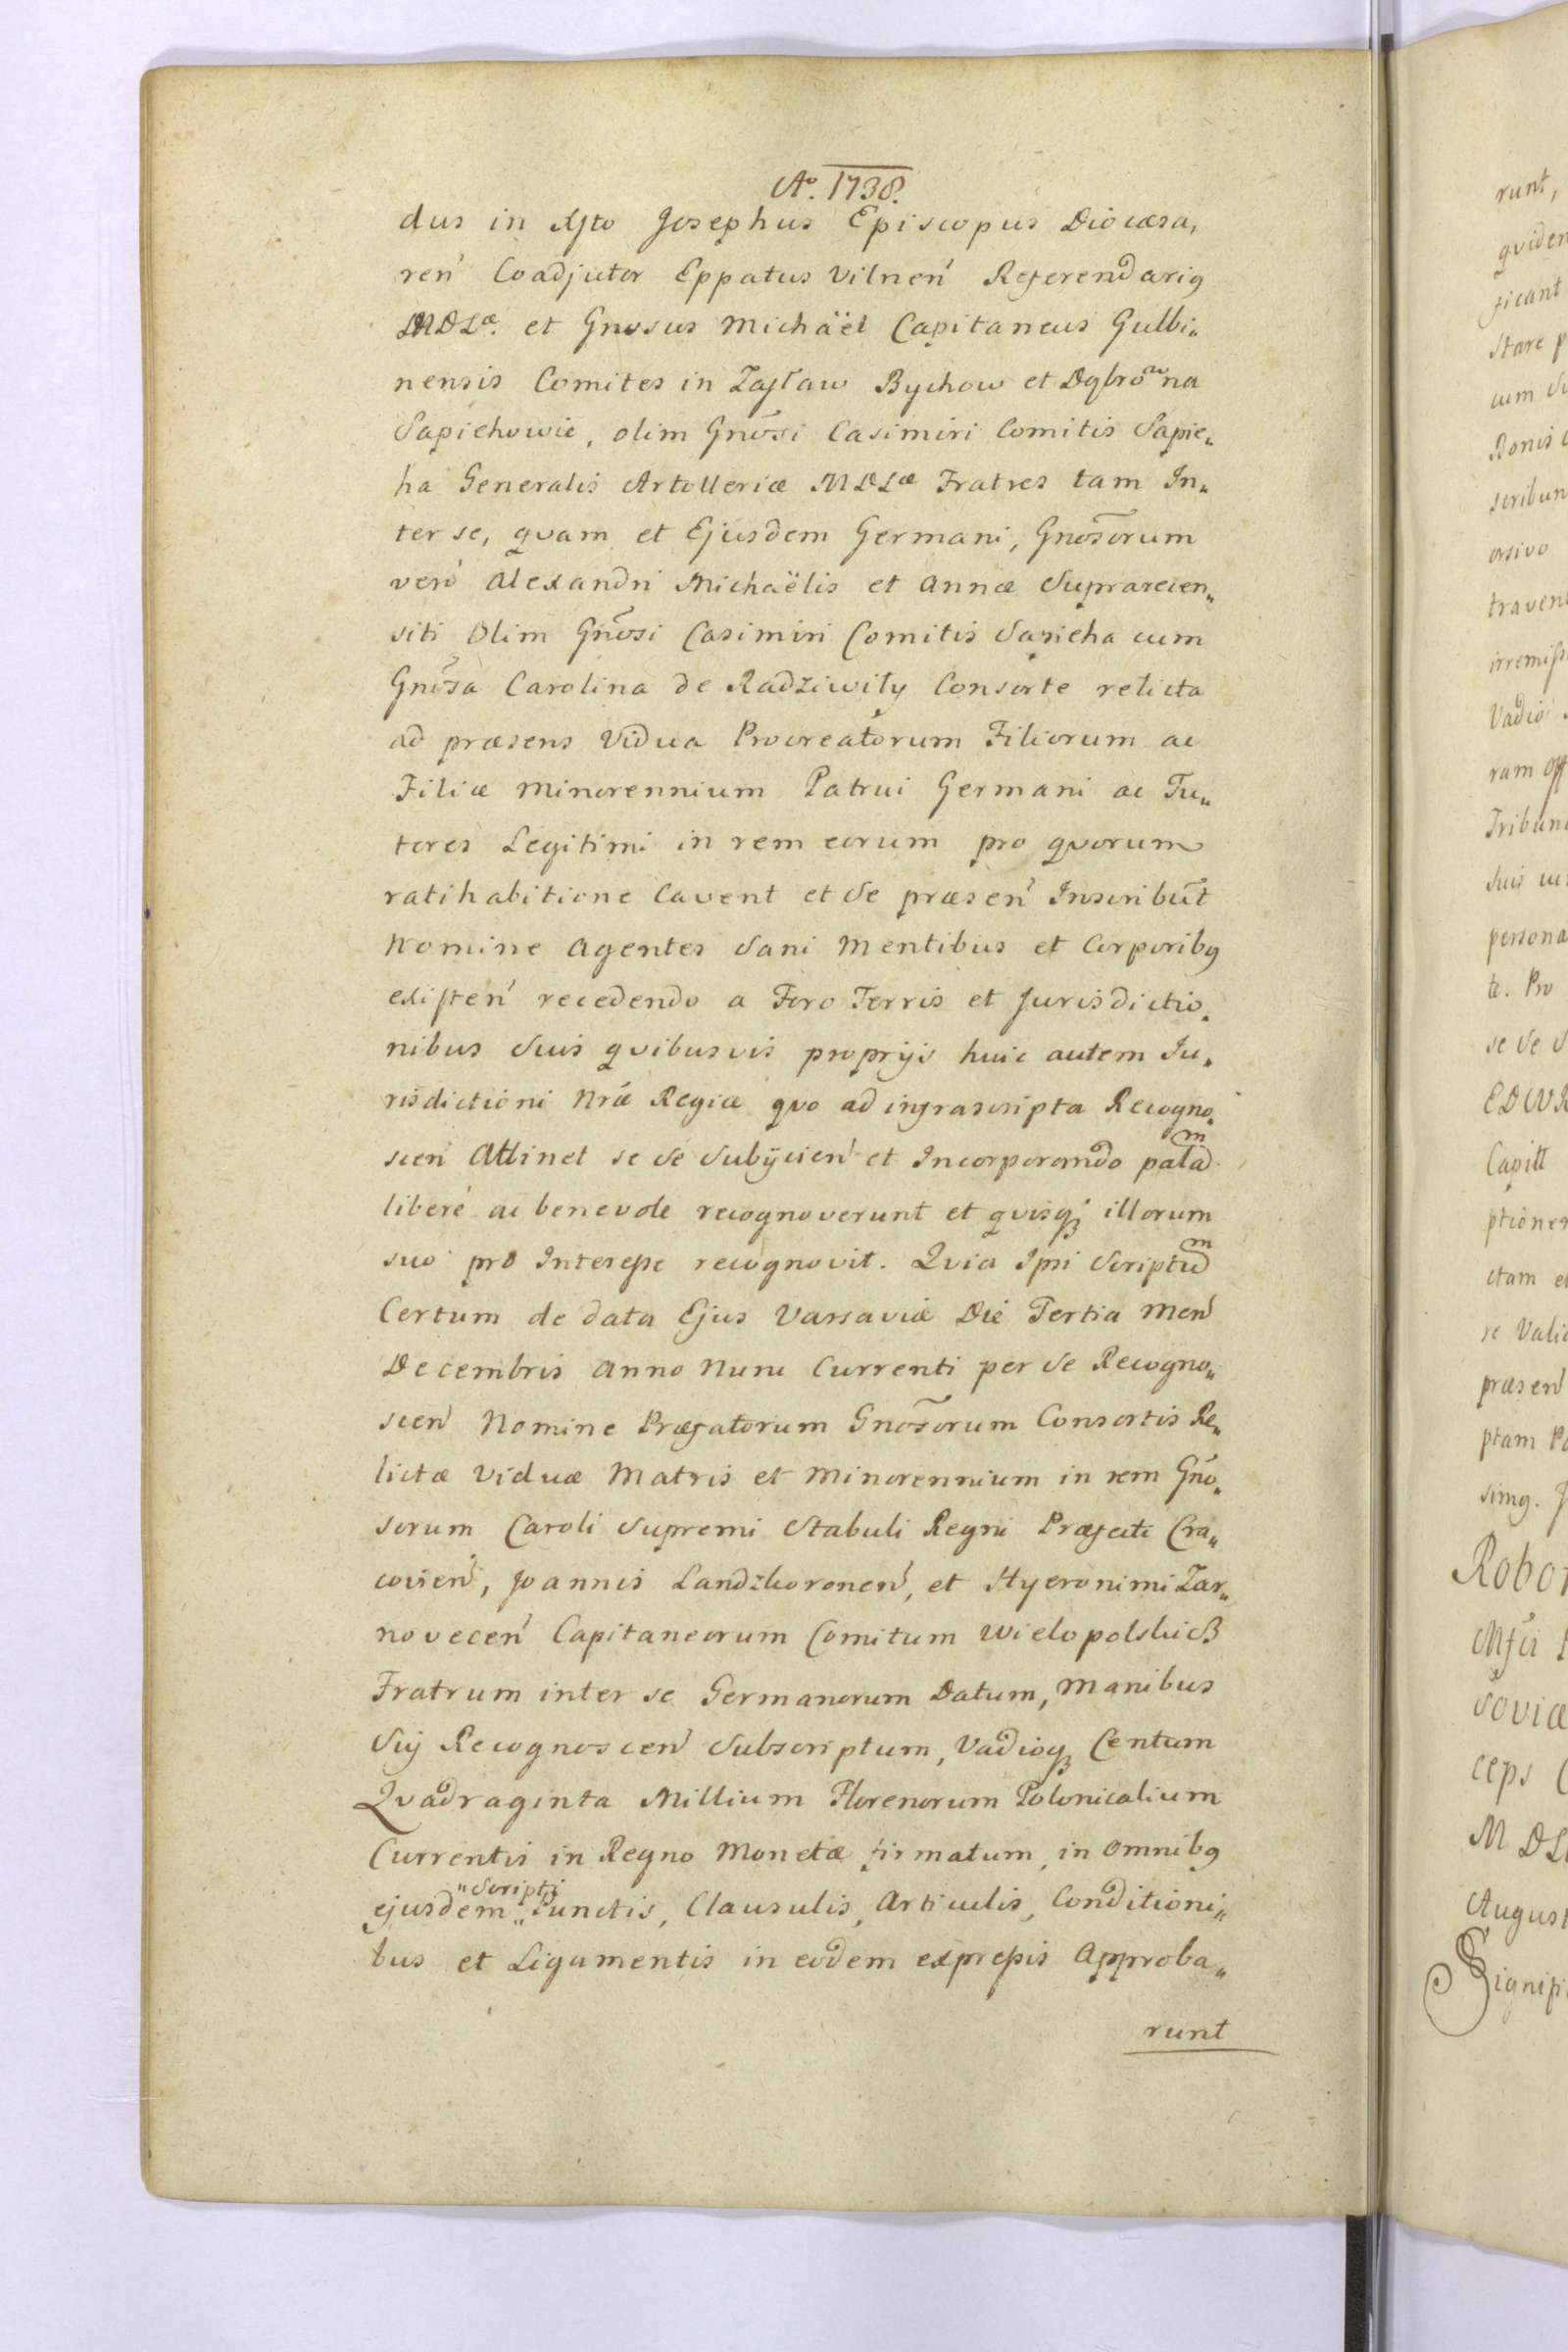 Aº. 1738.
dus in Xsto Josephus Episcopus Diocæsa,
reń Coadjutor Eppatus Vilneń Referendarig
MDLæ. et Gnosus Michäël Capitaneus Gulbi„
nensis Comites in Zasław Bychow et Dąbrowna
Sapiehowie, olim Gnosi Casimiri Comitis Sapie„
ha Generalis Artolleriæ MDLæ Fratres tam In„
ter se, quam et Ejusdem Germani, Gnosorum
verò Alexandri Michaëlis et Annæ Suprarecen„
siti Olim Gnosi Casimiri Comitis Sapieha cum
Gnosa Carolina de Radziwiły Consorte relicta
ad præsens Vidua Procreatorum Filiorum ac
Filiæ Minorennium Patrui Germani ac Tu„
tores Legitimi in rem eorum pro quorum
ratihabitione Cavent et se præseń Inscribūt
Nomine Agentes Sani Mentibus et Corporibg
existeń recedendo a Foro Terris et Jurisdictio„
nibus Suis quibusvis proprijs huic autem Ju„
risdictioni Nræ Regiæ quo ad infrascripta Recogno„
sceń Attinet se se Subijcień et Incorporando palam
liberè ac benevole recognoverunt et quisq; illorum
suo pro Interesse recognovit. Quia Ipsi Scriptum
Certum de data Ejus Varsaviæ Die Tertia Meń
Decembris Anno Nunc Currenti per se Recogno„
sceń Nomine Præfatorum Gnosorum Consortis Re„
lictæ Viduæ Matris et Minorennium in rem Gno„
sorum Caroli Supremi Stabuli Regni Præfecti Cra„
covień, Joannis Landzkoroneń, et Hyeronimi Zar„
noveceń Capitaneorum Comitum Wielopolskich
Fratrum inter se Germanorum Datum, Manibus
Sij Recognosceń Subscriptum, Vadioq; Centum
Quadraginta Millium Florenorum Polonicalium
Currentis in Regno Monetæ firmatum, in omnibg
"Scripti
ejusdem „ Punctis, Clausulis, Articulis, Conditioni„
bus et Ligamentis in eodem expressis Approba„
runt
runt,
ficant
Stare p
cum Su
Ronis
orsivo
Vadio
ram Off
persona
te. Pro
se se S
Capitt
ptionem
ctam et
re Vali
præseń
ptam
simg.
Robor
soviæ
ceps
MDL
August